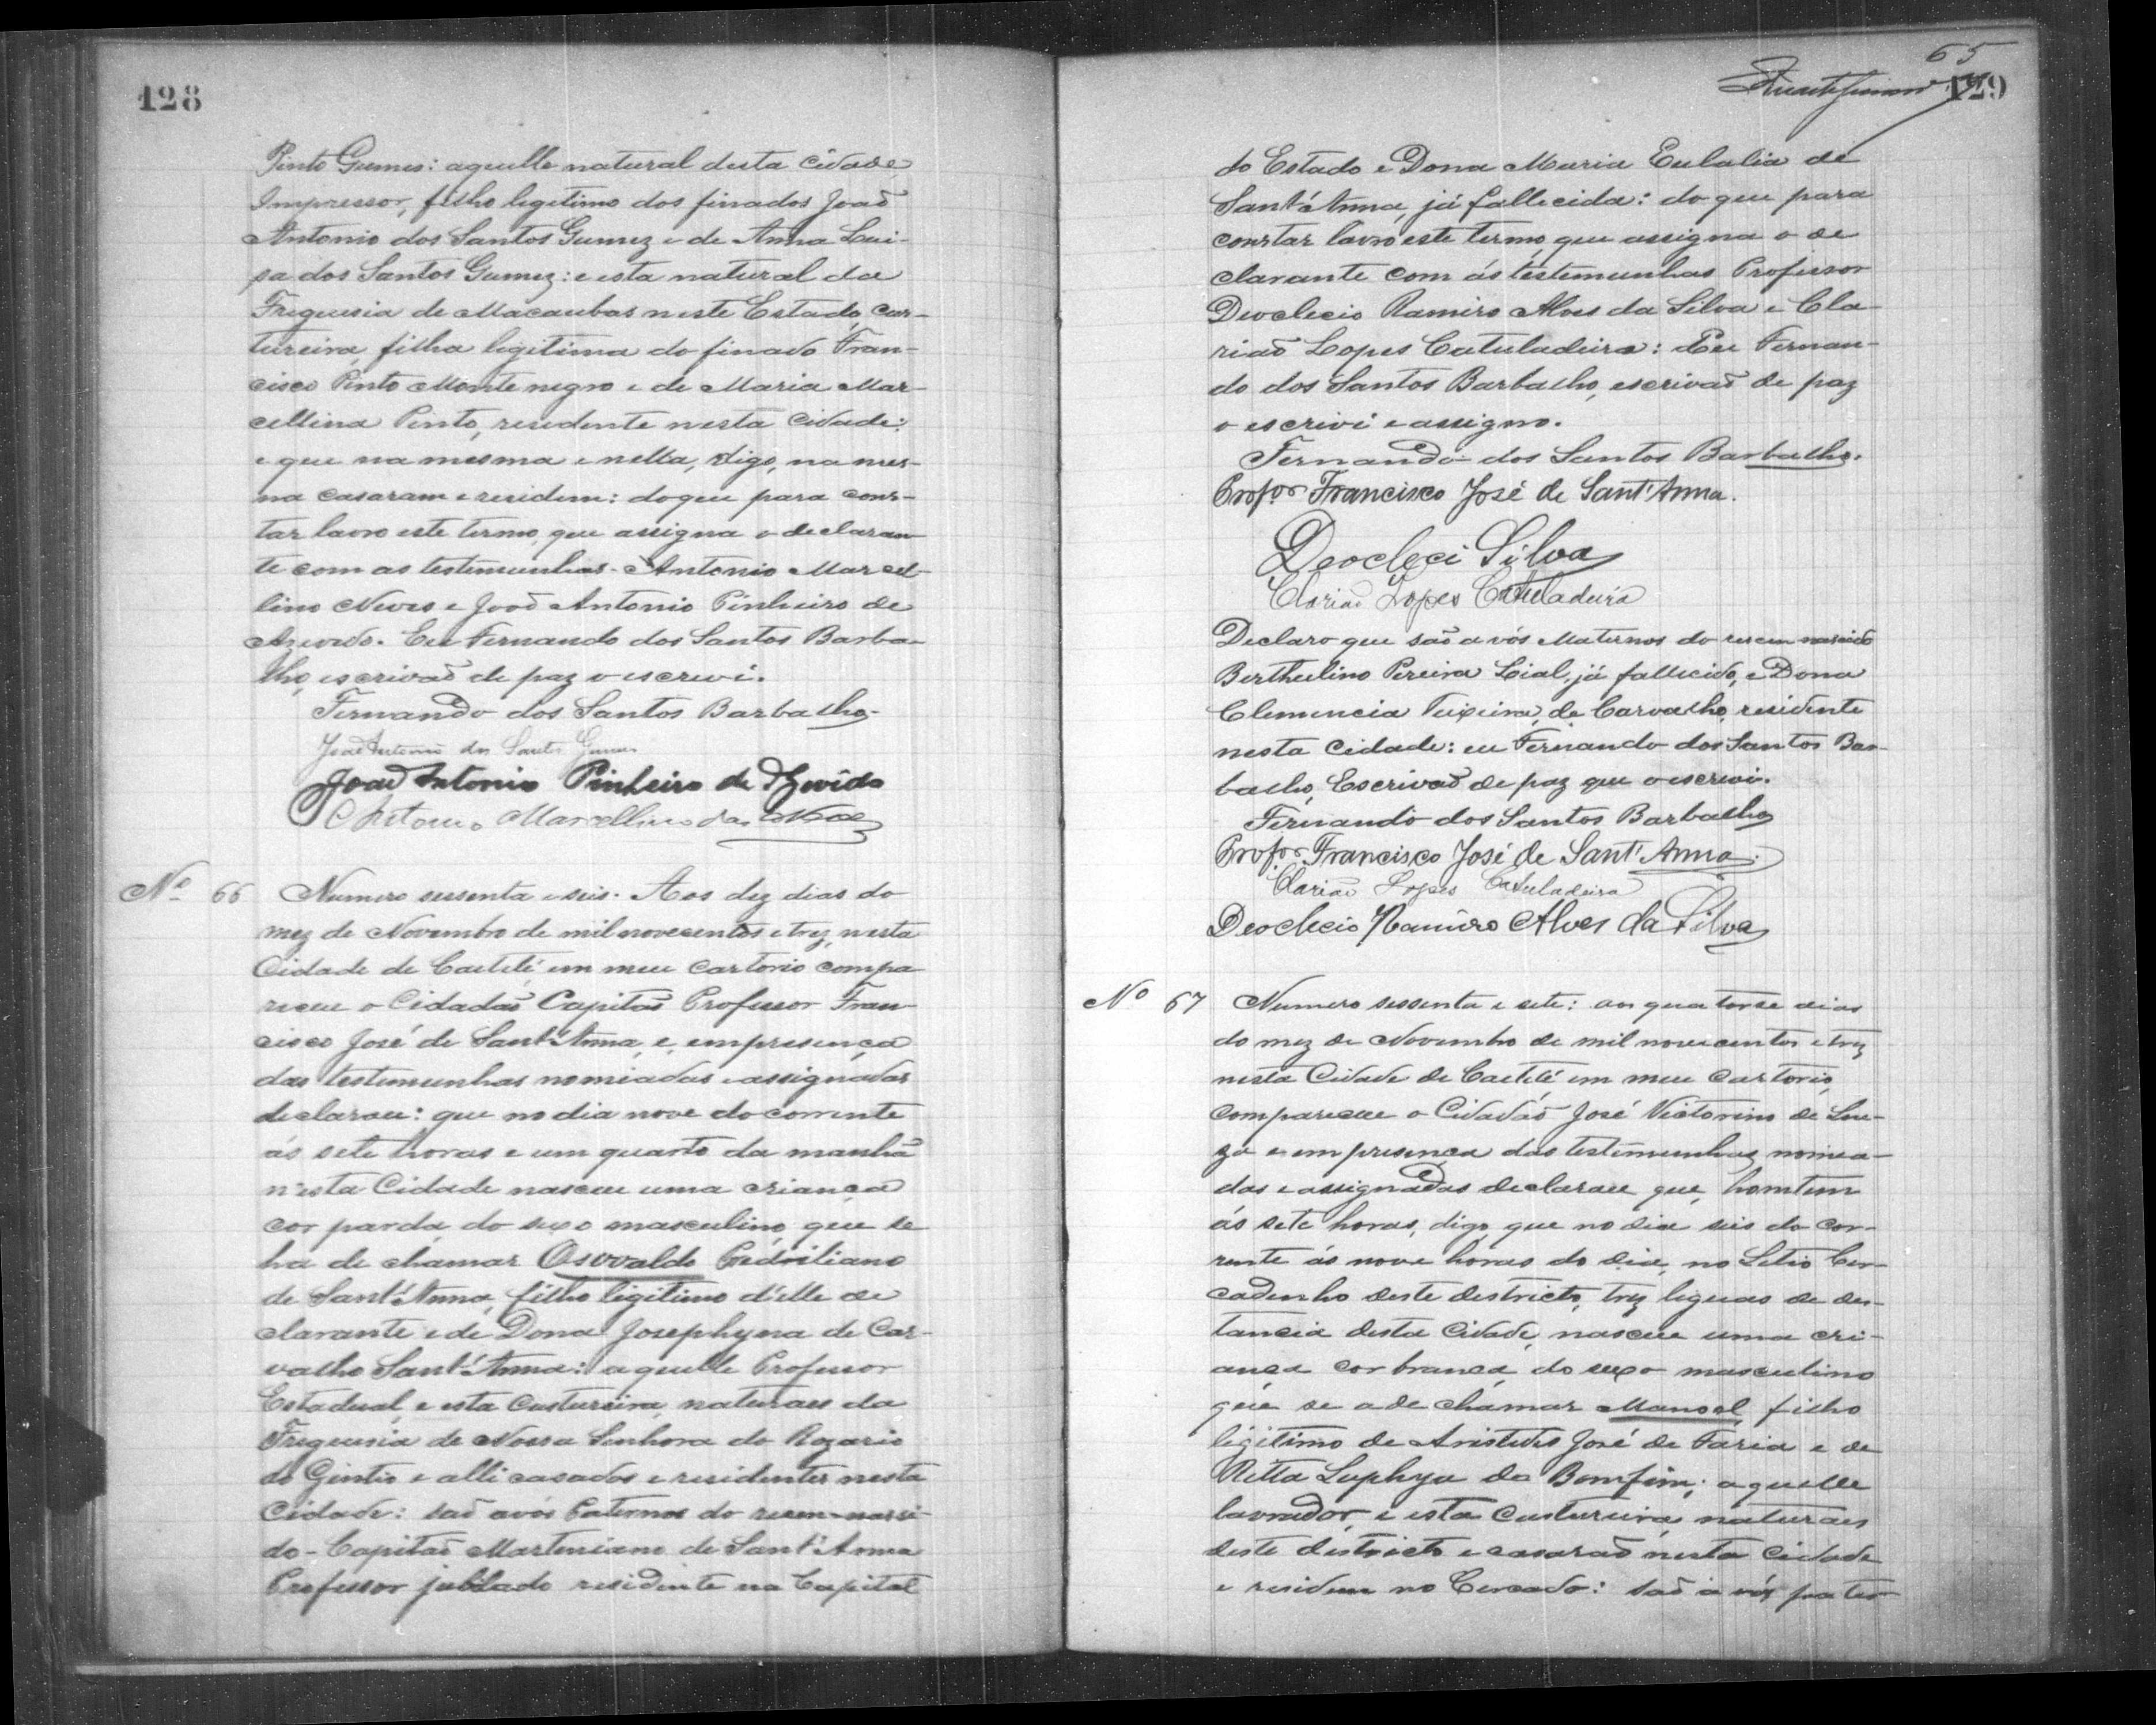 128
Pinto Gumes: aquelle natural desta Cidade,
Impressor, filho legitimo dos finados Joaõ
Antonio dos Santos Gumez e de Anna Lui-
sa dos Santos Gumez: e esta natural da
Freguesia de Macaubas neste Estado, cos-
tureira, filha legitima do finado Fran-
cisco Pinto Montenegro e de Maria Mar-
cellina Pinto, residente nesta Cidade:
e que na mesma e nella, digo, na mes-
ma casaram e residem: do que para cons-
tar lavro este termo, que assigna o declaran
te com as testemunhas Antonio Marcel-
lino Neves e Joaõ Antonio Pinheiro de
Azevedo. Eu Fernando dos Santos Barba-
lho, escrivaõ de paz o escrevi.
Fernando dos Santos Barbalho
Joaõ Antonio dos Santos Gumes
Joaõ Antonio Pinheiro de Azevêdo
Antonio Marcellino das Neves
Nº 66 Numero sessenta e seis. Aos dez dias do
mez de Novembro de mil novecentos e trez, nesta
Cidade de Caetité em meu cartorio compa
receu o Cidadaõ Capitaõ Professor Fran-
cisco José de Sant'Anna, e, em presença
das testemunhas nomiadas e assignadas
declarou: que no dia nove do corrente
ás sete horas e um quarto da manhã
n'esta Cidade nasceu uma criança
cor parda, do sexo masculino, que se
ha de chamar Oswaldo Pedriliano
de Sant'Anna, filho legitimo d'elle de
clarante e de Dona Josephyna de Car-
valho Sant'Anna: aquelle Professor
Estadual, e esta Custureira, naturaes da
Freguesia de Nossa Senhora do Rozario
do Gentio e alli casados e residentes nesta
Cidade: saõ avós Paternos do recem-nassi-
do - Capitaõ Marteniano de Sant'Anna
Professor jubilado residente na Capital
65
129
do Estado e Dona Maria Eulalia de
Sant'Anna, já fallecida: do que para
constar lavro este termo, que assigna o de
clarante com ás testemunhas Professor
Deoclecio Ramiro Alves da Silva e Cla-
riaõ Lopes Catuladeira: Eu Fernan-
do dos Santos Barbalho, escrivaõ de paz
o escrivi e assigno.
Fernando dos Santos Barbalho.
Profor Francisco José de Sant'Anna.
Deocleci Silva
Clariaõ Lopes Catuladeira
Declaro que saõ avós Maternos do recem nascido
Berthulino Pereira Lial, já fallecido, e Dona
Clemencia Teixeira de Carvalho, residente
nesta Cidade: eu Fernando dos Santos Bar-
balho, Escrivaõ de paz que o escrevi.
Fernando dos Santos Barbalho
Profor Francisco José de Sant'Anna.
Clariaõ Lopes Catuladeira
Deoclecio Ramiro Alves da Silva
Nº 67 Numero sessenta e sete: aos quatorse dias
do mez de Novembro de mil novecentos e trez
nesta Cidade de Caetité em meu Cartorio,
compareceu o Cidadaõ José Victorino de Sou-
za e em presença das testemunhas nomea-
das e assignadas declarou que, homtem
ás sete horas, digo, que no dia seis do cor-
rente ás nove horas do dia, no Setio Cer-
cadinho deste districto, trez leguas de des-
tancia desta Cidade, nasceu uma cri-
ança cor branca, do sexo masculino
que se a de chamar Manoel, filho
legitimo de Aristides José de Faria e de
Ritta Sephya do Bomfim; aquelle
lavrador, e esta Custureira, naturaes
deste districto e casaraõ nesta Cidade
e residem no Cercado: saõ avós pater